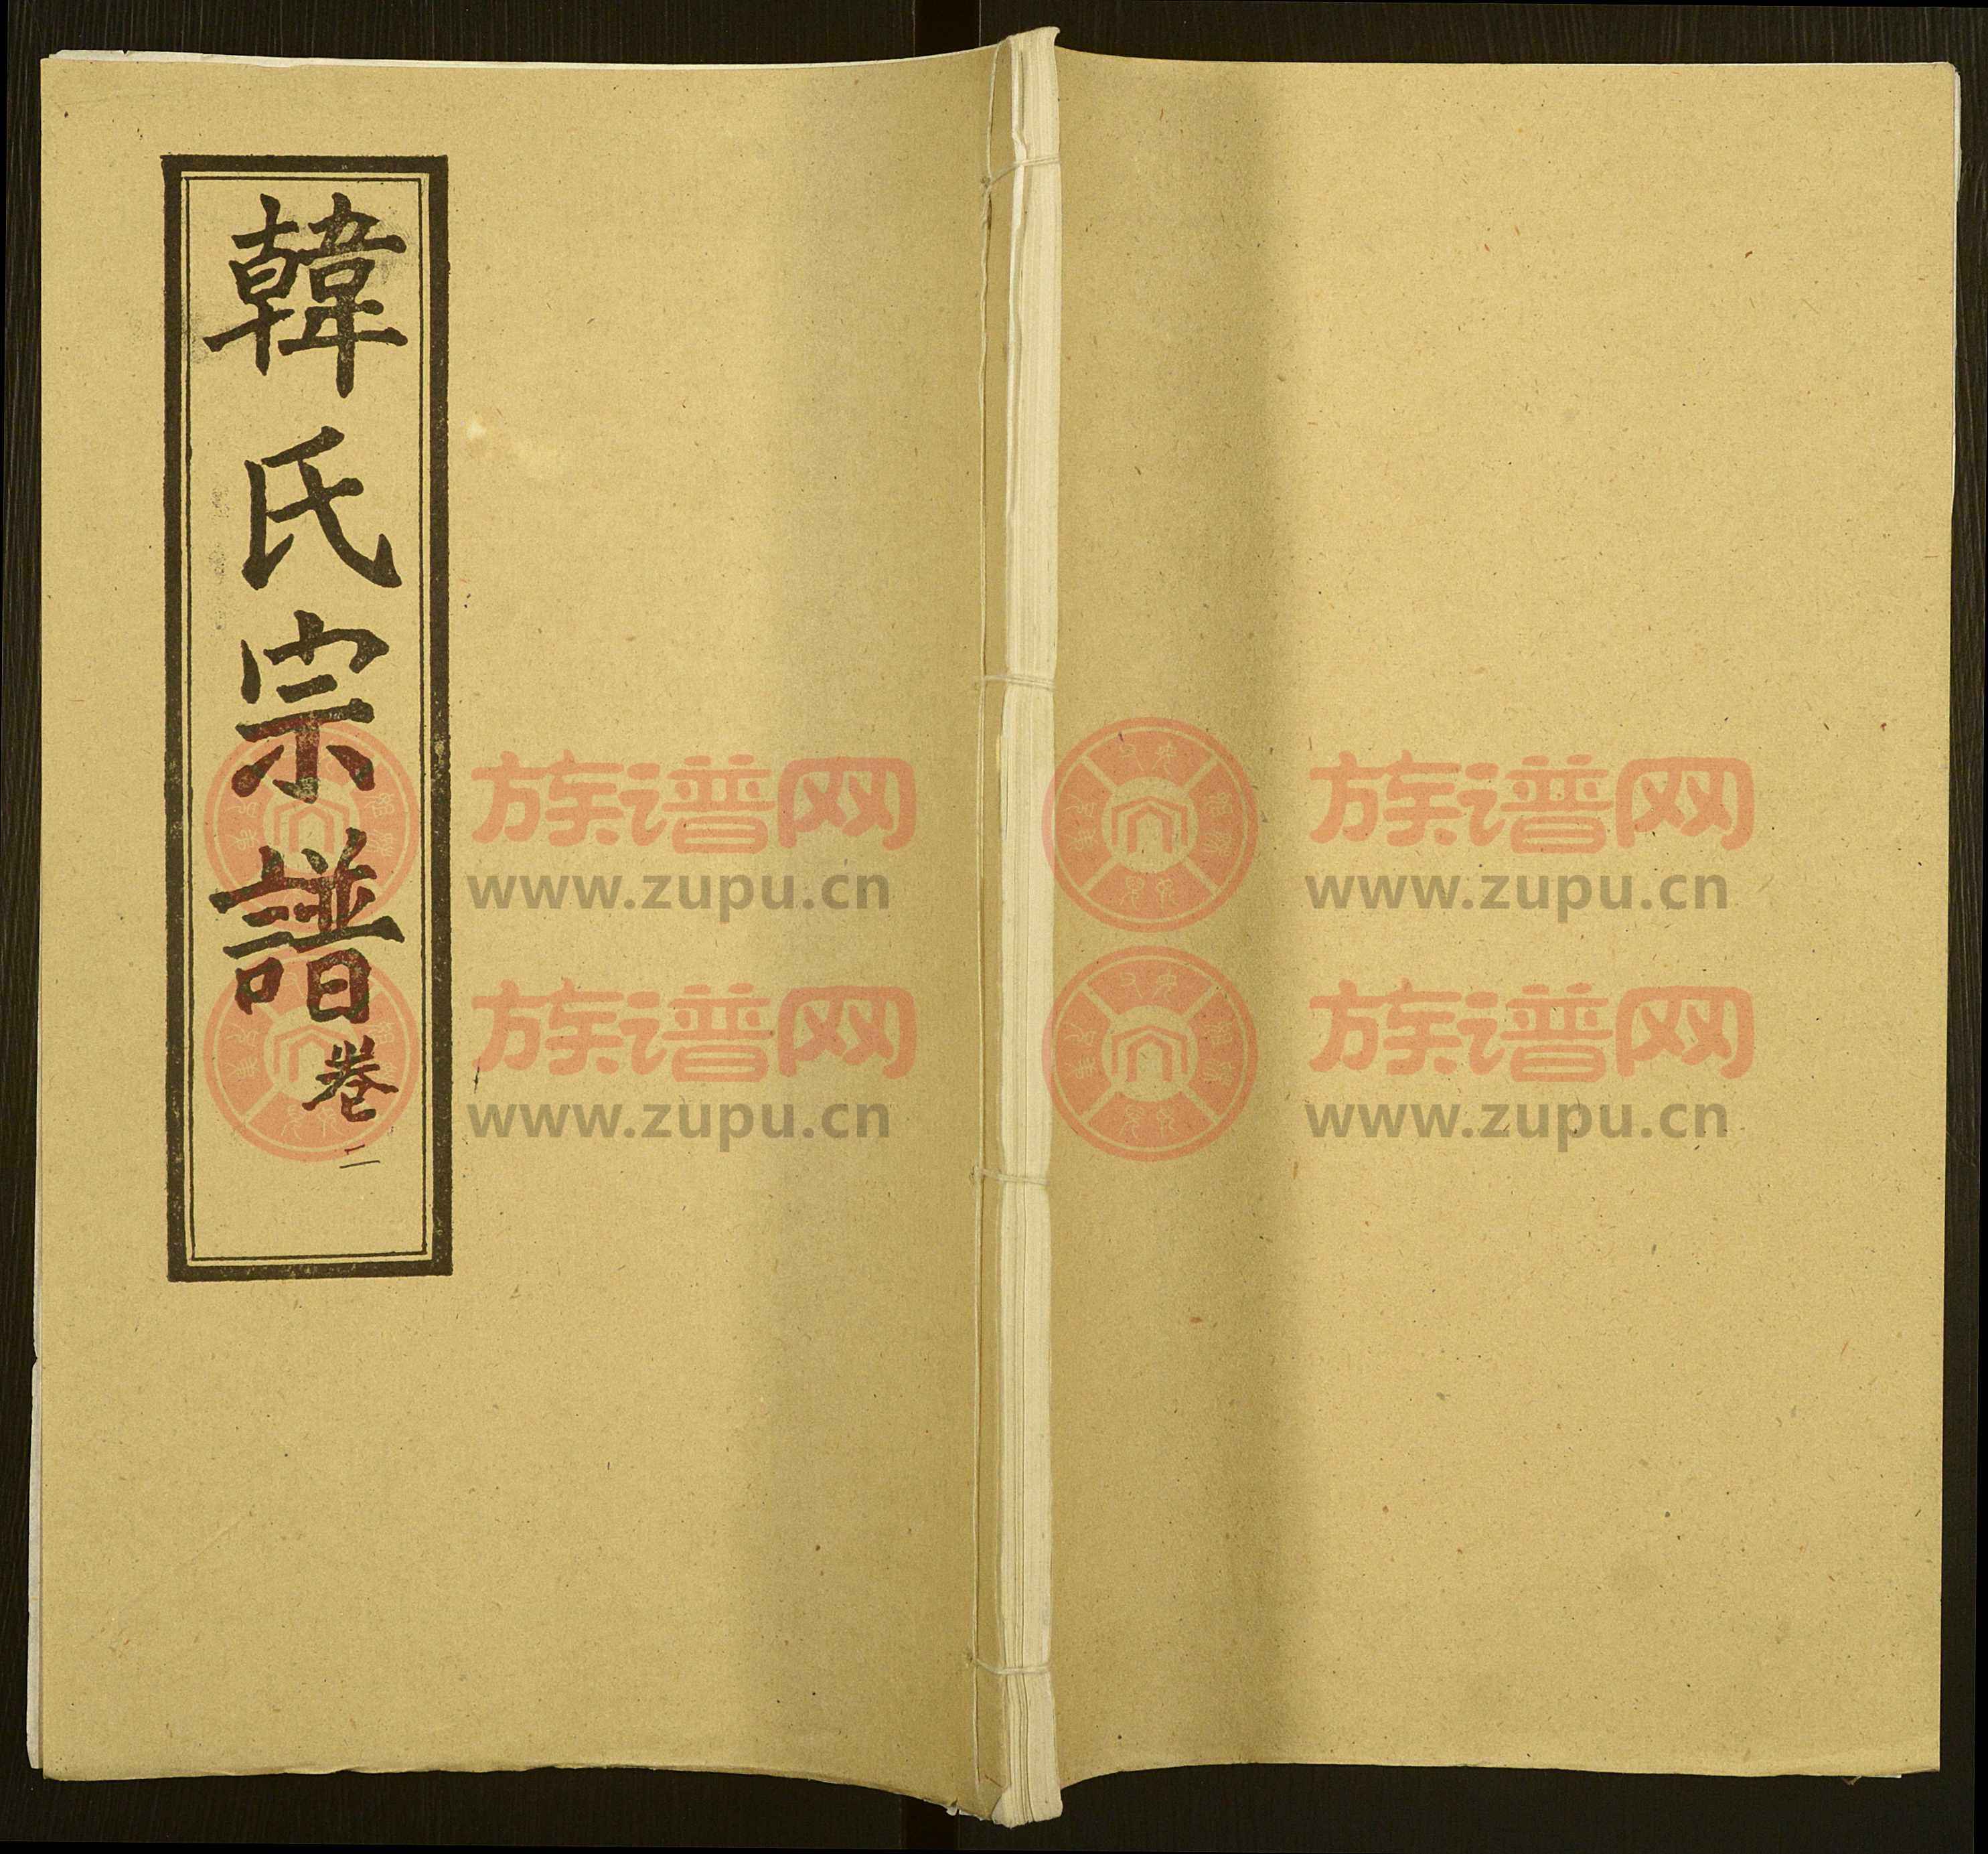 韓氏宗譜卷二
族谱网
www.zupu.cn
族谱网
www.zupu.cn
族谱网
www.zupu.cn
族谱网
www.zupu.cn